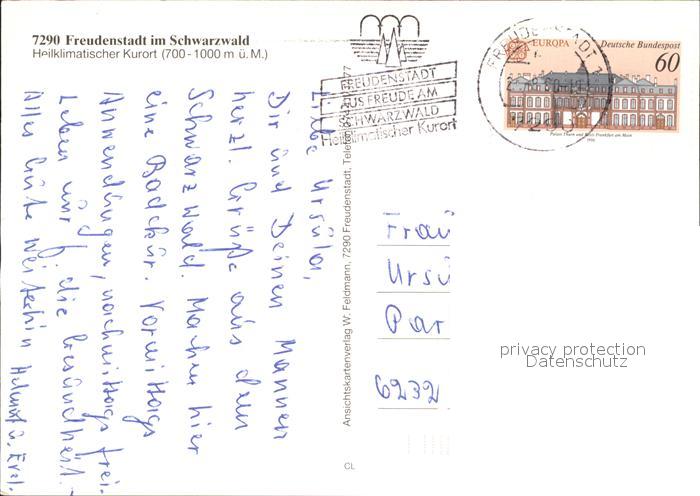 7290 Freudenstadt im Schwarzwald
Heilklimatischer Kurort (700-1000 m ü. M.)
Liebe Ursula,
Dir und Deinen Mannen
herzl. Grüße aus dem
Schwarzwald. Machen hier
eine Badekur. Vormittags
Anwendungen, nachmittags frei.
Leben nur f. die Gesundheit.
Alles Gute weiterhin Helmut u. Evel.
Ansichtskartenverlag W. Feldmann, 7290 Freudenstadt, Telefon
CL
FREUDENSTADT
AUS FREUDE AM
SCHWARZWALD
Heilklimatischer Kurort
FREUDENSTADT 1
EUROPA Deutsche Bundespost
60
Palais Thurn und Taxis Frankfurt am Main
1990
Frau
Ursu
Par
6232
privacy protection
Datenschutz